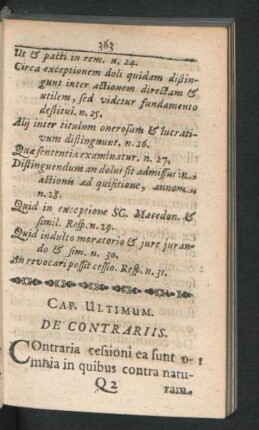 363
Ut & pacti in rem. n. 24.
Circa exceptionem doli quidam distin-
gunt inter actionem directam &
utilem, sed videtur fundamento
destitui. n. 25.
Alij inter titulum onerosum & lucrati-
vum distingunt. n. 26.
Quæ sententia examinatur. n. 27.
Distinguendum an dolus sit admissus in
actionis ad quisitione, an non.
n. 28.
Quid in exceptione SC. Macedon. &
simil. Resp. n. 29.
Quid indulto moratorio & jure juran-
do & sim. n. 30.
An revocari possit cessio. Resp. n. 31.
CAP. ULTIMUM.
DE CONTRARIIS.
COntraria cessioni ea sunt o- 1
mnia in quibus contra natu-
Q2 ram